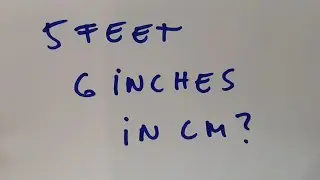 5 FEET
6 iNCHES
iN CM?